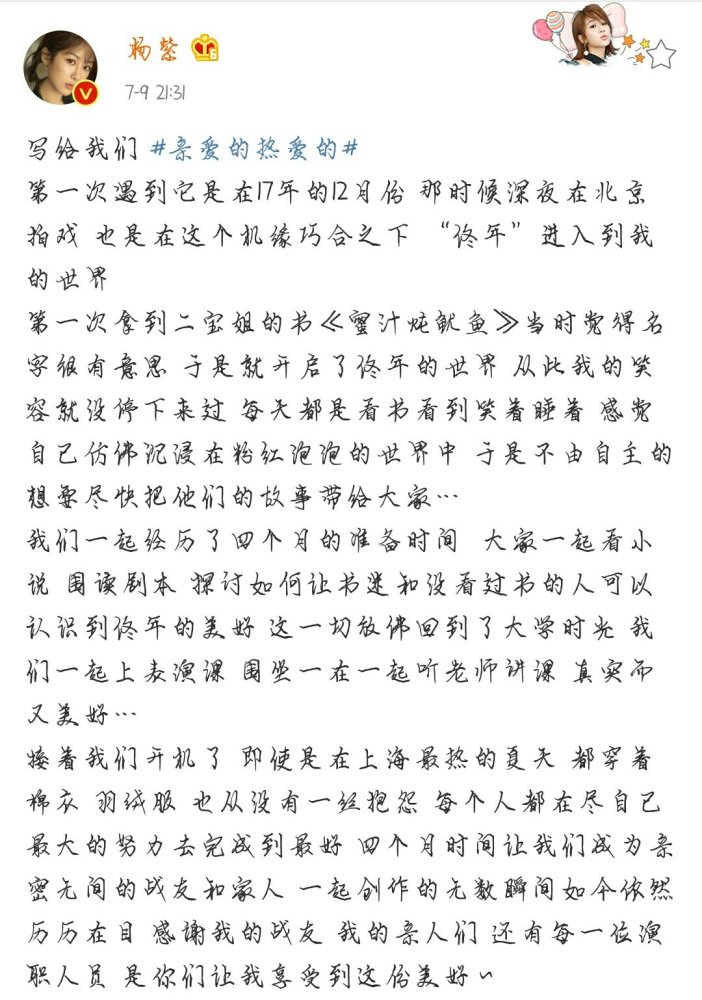 杨紫
7-9 21:31
写给我们 #亲爱的热爱的#
第一次遇到它是在17年的12月份 那时候深夜在北京
拍戏 也是在这个机缘巧合之下 “佟年”进入到我
的世界
第一次拿到二宝姐的书《蜜汁炖鱿鱼》当时觉得名
字很有意思 于是就开启了佟年的世界 从此我的笑
容就没停下来过 每天都是看书看到笑着睡着 感觉
自己仿佛沉浸在粉红泡泡的世界中 于是不由自主的
想要尽快把他们的故事带给大家…
我们一起经历了四个月的准备时间 大家一起看小
说 围读剧本 探讨如何让书迷和没看过书的人可以
认识到佟年的美好 这一切放佛回到了大学时光 我
们一起上表演课 围坐一在一起听老师讲课 真实而
又美好…
接着我们开机了 即使是在上海最热的夏天 都穿着
棉衣 羽绒服 也从没有一丝抱怨 每个人都在尽自己
最大的努力去完成到最好 四个月时间让我们成为亲
密无间的战友和家人 一起创作的无数瞬间如今依然
历历在目 感谢我的战友 我的亲人们 还有每一位演
职人员 是你们让我享受到这份美好~